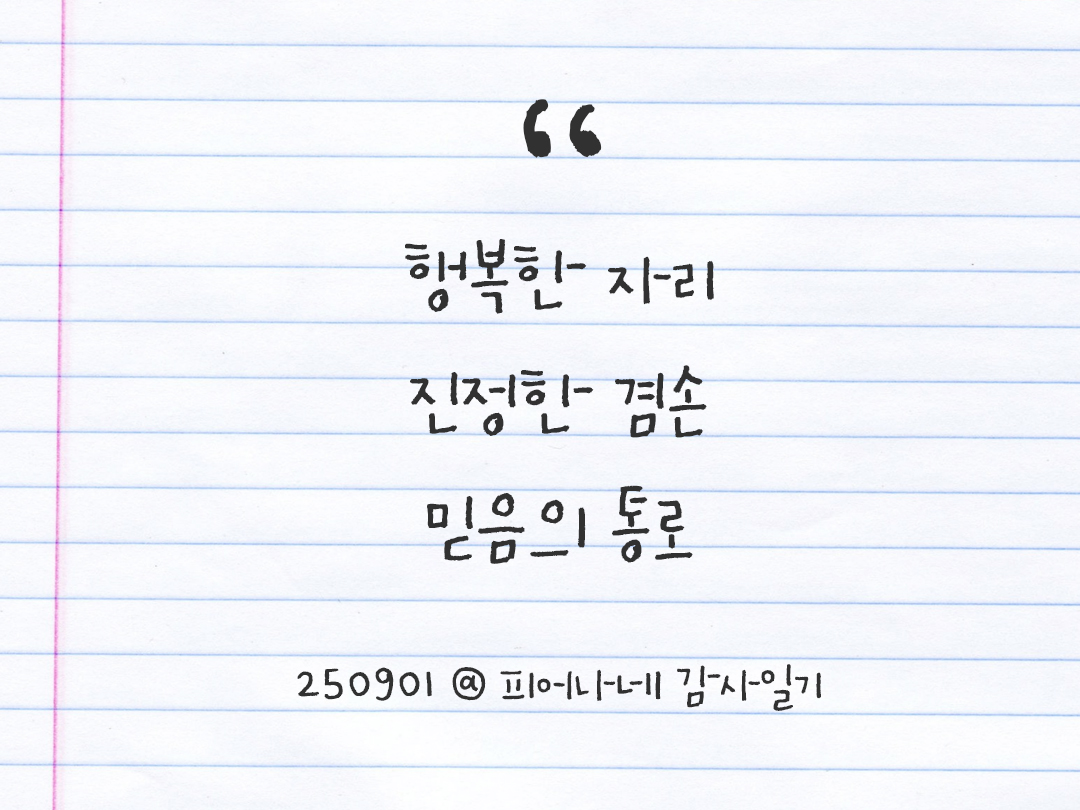 “
행복한 자리
진정한 겸손
믿음의 통로
250901 @ 피어나네 감사일기